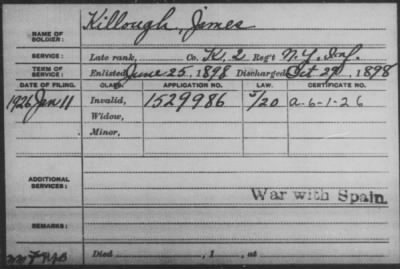 NAME OF SOLDIER: Killough, James
SERVICE: Late rank, Co. K, 2 Reg't N.Y. Inf.
TERM OF SERVICE: Enlisted June 25, 1898 Discharged Oct 29, 1898
DATE OF FILING. CLASS. APPLICATION NO. LAW. CERTIFICATE NO.
1926 Jan 11 Invalid, 1529986 5/20 a-6-1-26
Widow,
Minor,
ADDITIONAL SERVICES:
War with Spain.
REMARKS:
Died , 1 , at